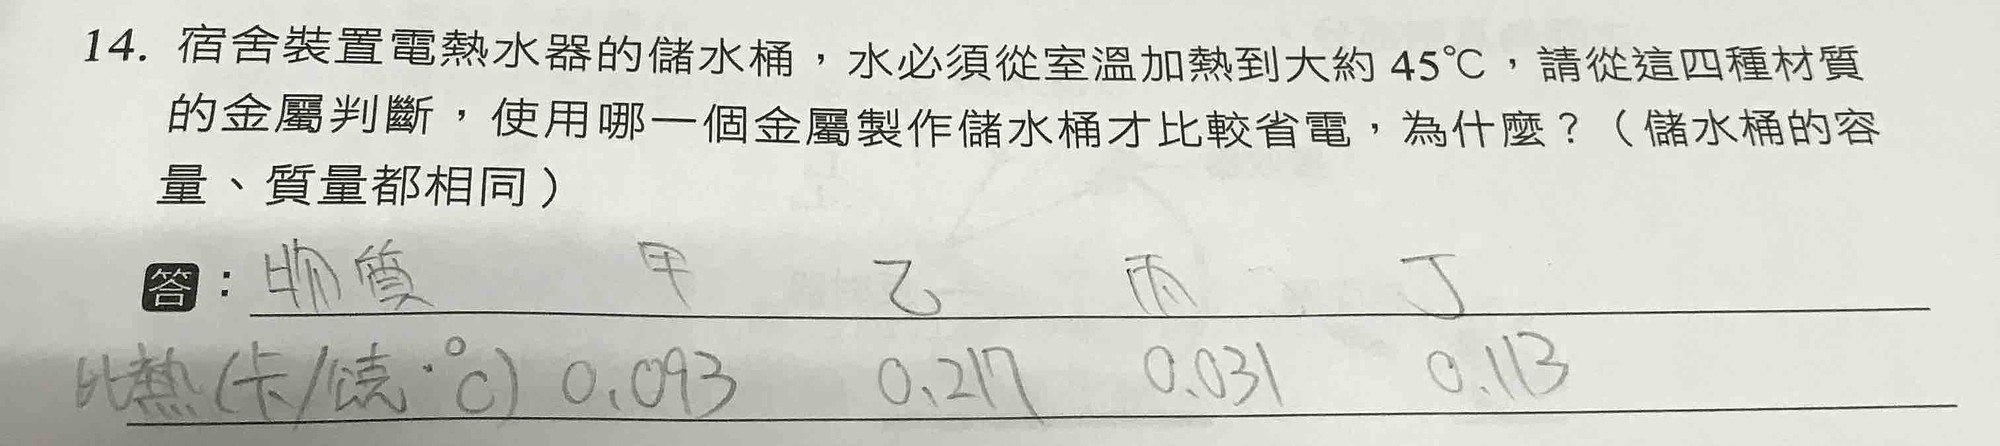 14. 宿舍裝置電熱水器的儲水桶，水必須從室溫加熱到大約 45℃，請從這四種材質
的金屬判斷，使用哪一個金屬製作儲水桶才比較省電，為什麼？（儲水桶的容
量、質量都相同）
答：物質 甲 乙 丙 丁
比熱(卡/克·℃) 0.093 0.217 0.031 0.113